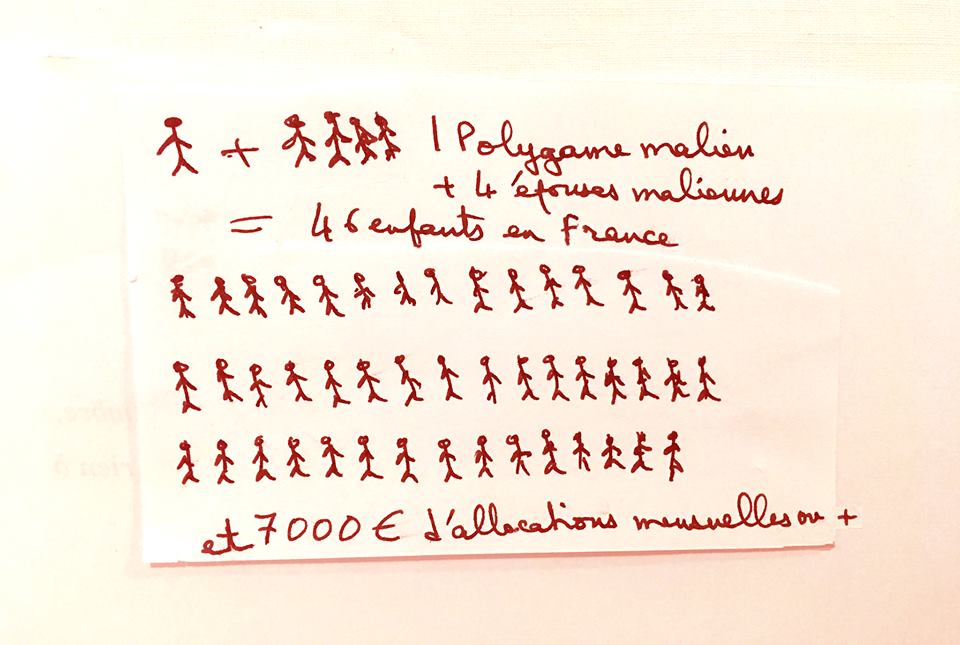 1 Polygame malien
+ 4 épouses maliennes
= 46 enfants en France
et 7000 € d'allocations mensuelles ou +